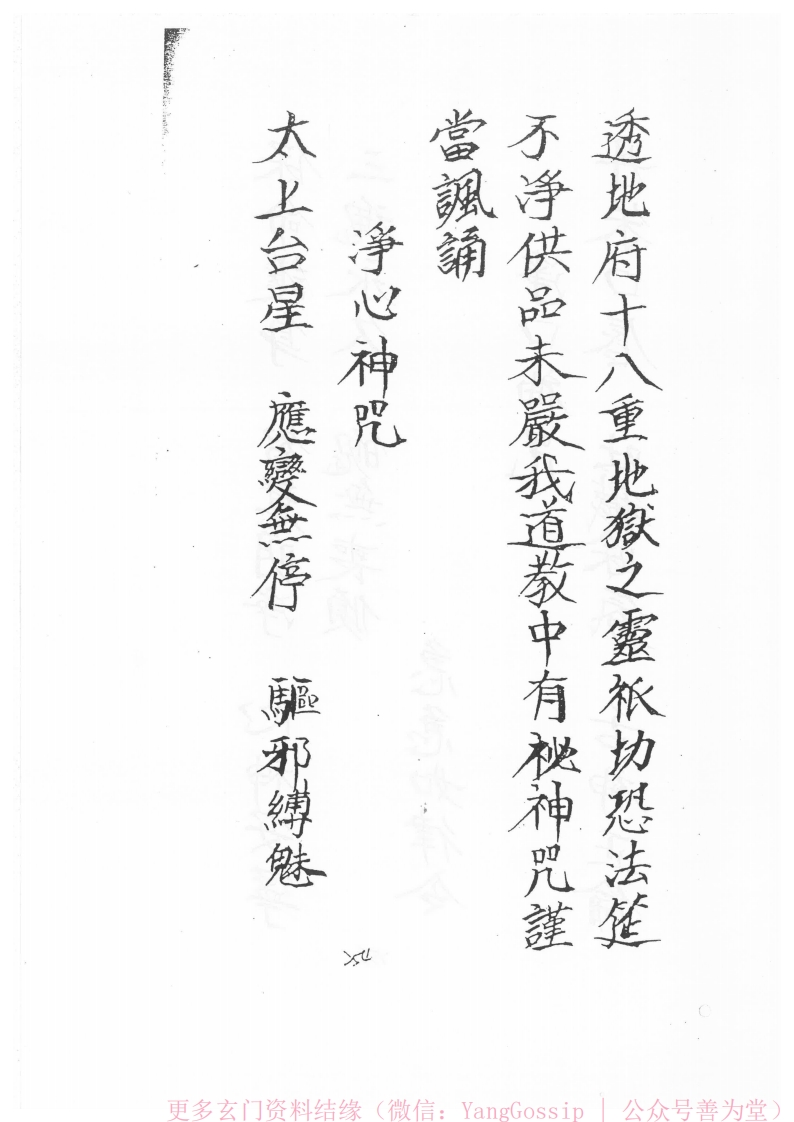 透地府十八重地獄之靈祇切恐法筵
不淨供品未嚴我道教中有祕神咒謹
當諷誦
淨心神咒
太上台星　應變無停　驅邪縛魅
更多玄门资料结缘（微信：YangGossip | 公众号善为堂）